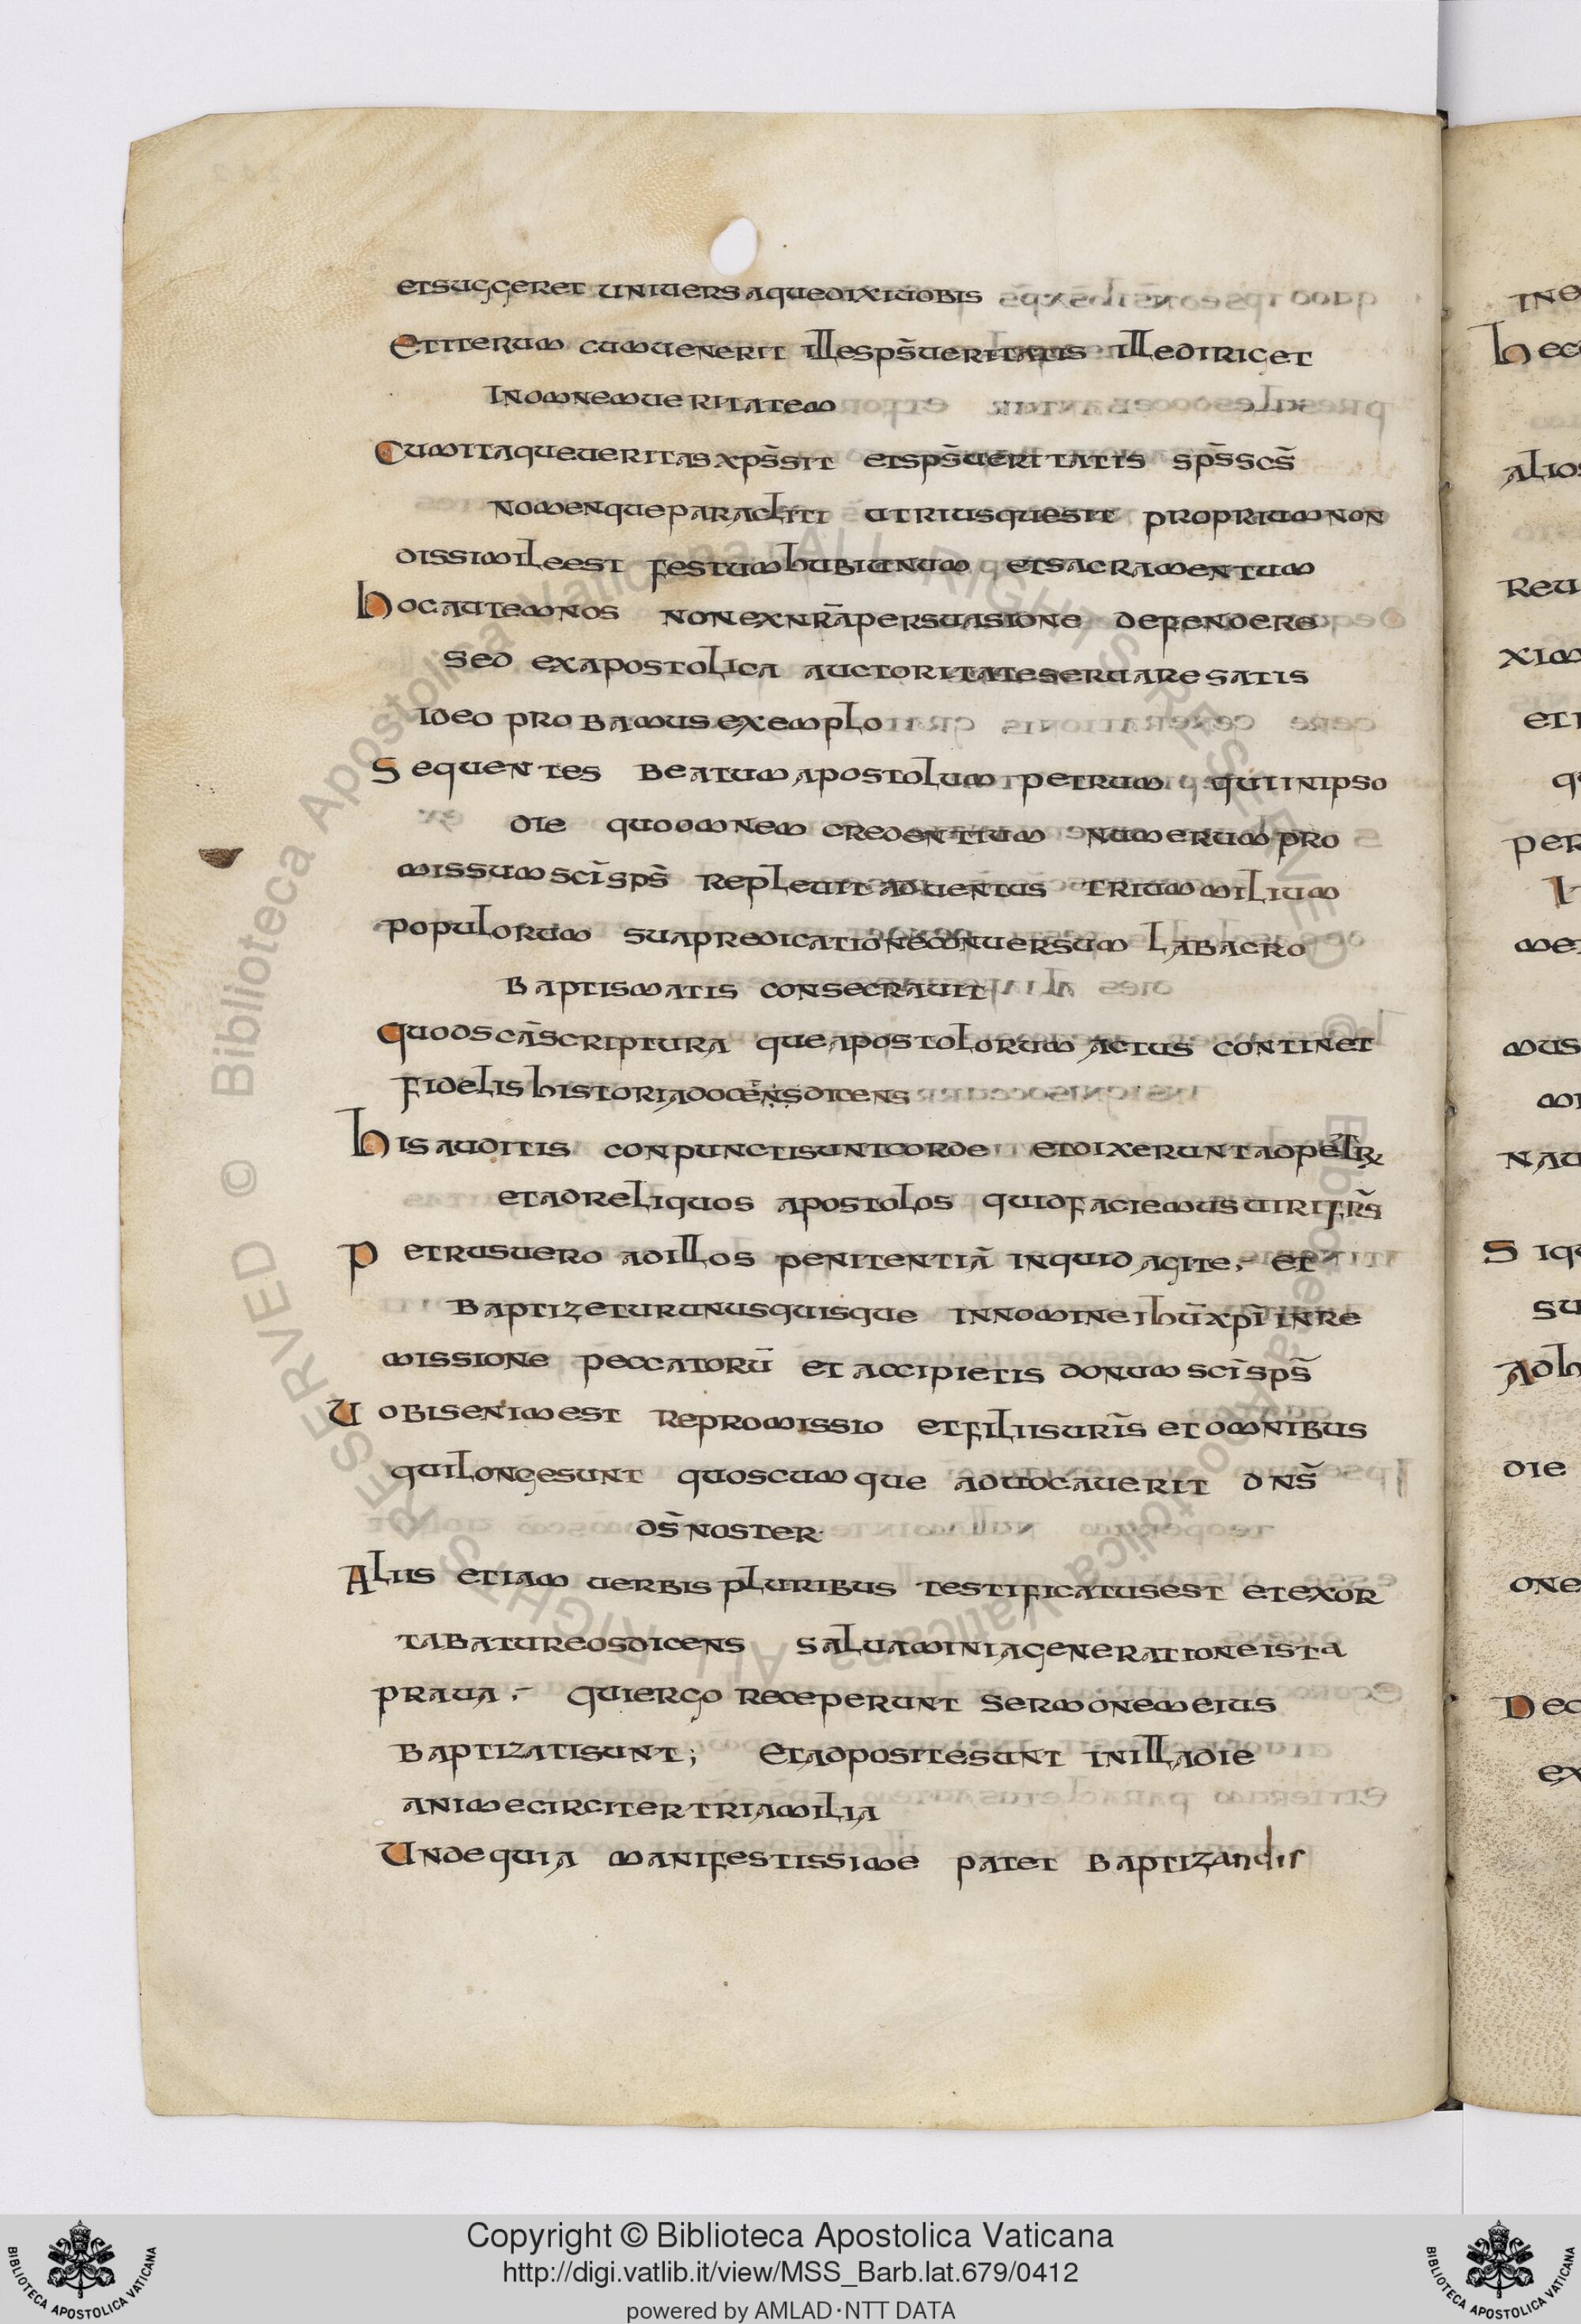 etsuggeret uniuersaquedixiuobis
Etiterum cumuenerit illesps̄ueritatis illediriget
Inomnemueritatem
Cumitaqueueritasxps̄sit etsps̄ueritatis sps̄scs̄
nomenqueparacliti utriusquesit propriumnon
dissimileest festumhubiunum etsacramentum
hocautemnos nonexnr̄apersuasione defendere
sed exapostolica auctoritateseruaresatis
ideo probamusexemplo
Sequentes beatumapostolum petrum quiinipso
die quoomnem credentium numerumpro
missumscīsps̄ repleuit aduentus triummilium
populorum suapredicationeconuersum labacro
baptismatis consecrauit
quodscās̄criptura queapostolorum actus continet
fidelishistoriadocensdicens
hisauditis conpunctisuntcorde etdixeruntadpetR
etadreliquos apostolos quidfaciemusuirifrs̄
petrusuero adillos penitentiā inquid agite; et
baptizeturunusquisque innomineihūxpīinre
missione peccatorū et accipietis donumscīsps̄
Uobisenimest repromissio etfiliisurīs et omnibus
quilongesunt quoscumque aduocauerit dns̄
ds̄noster
Aliis etiam uerbispluribus testificatusest etexor
tabatureosdicens saluaminiagenerationeista
praua; quiergo receperunt sermonemeius
baptizatisunt; Etadpositesunt inilladie
animecirciter triamilia
Undequia manifestissime patet baptizandis
Copyright © Biblioteca Apostolica Vaticana
http://digi.vatlib.it/view/MSS_Barb.lat.679/0412
powered by AMLAD·NTT DATA